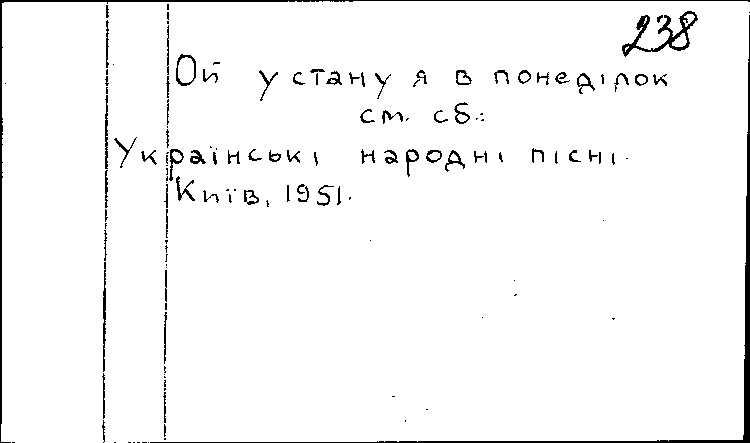 238
Ой устану я в понеділок
см. сб.:
Українські народні пісні.
Київ, 1951.